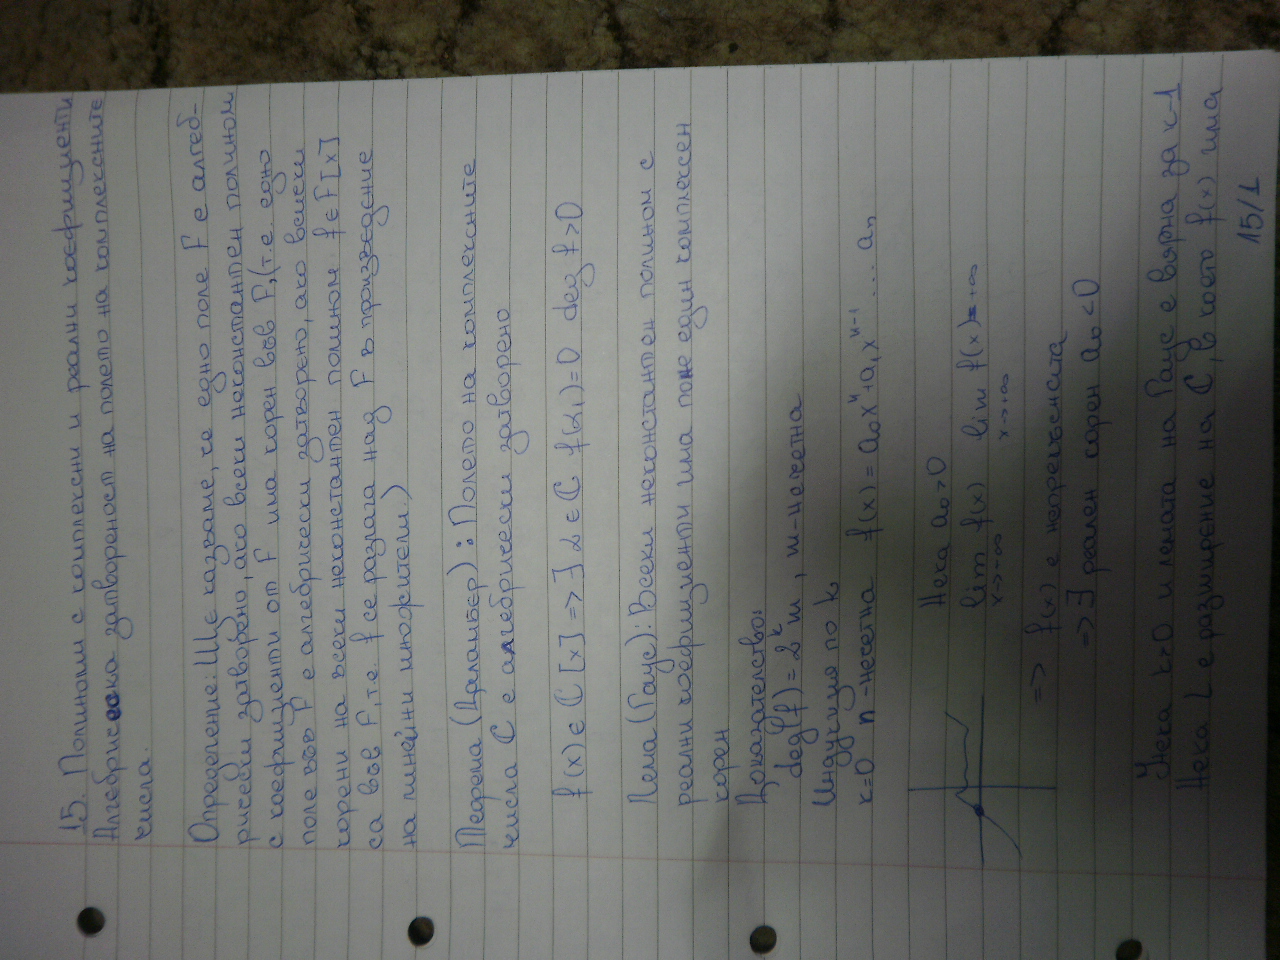 15. Полиноми с комплексни и реални коефициенти
Алгебрическа затвореност на полето на комплексните
числа.
Определение: Ще казваме, че едно поле F е алгеб-
рически затворено, ако всеки неконстантен полином
с коефициенти от F има корен във F, (т.е. едно
поле F е алгебрически затворено, ако всеки
корени на всеки неконстантен полином f ∈ F[x]
са във F, т.е. f се разлага над F в произведение
на линейни множители)
Теорема (Даламбер): Полето на комплексните
числа ℂ е алгебрически затворено
f(x) ∈ ℂ[x] => ∃ α ∈ ℂ f(α₁)=0 deg f>0
Лема (Гаус): Всеки неконстантен полином с
реални коефициенти има поне един комплексен
корен
Доказателство:
deg(f) = 2ᵏm, m-нечетна
Индукция по k
k=0 n-нечетна f(x) = a₀xⁿ+a₁xⁿ⁻¹ ... aₙ
Нека a₀>0
lim f(x) lim f(x)=+∞
x→-∞ x→+∞
=> f(x) е непрекъсната
=> ∃ реален корен a₀<0
Нека k>0 и лемата на Гаус е вярна за k-1
Нека L е разширение на ℂ, в което f(x) има
15/1